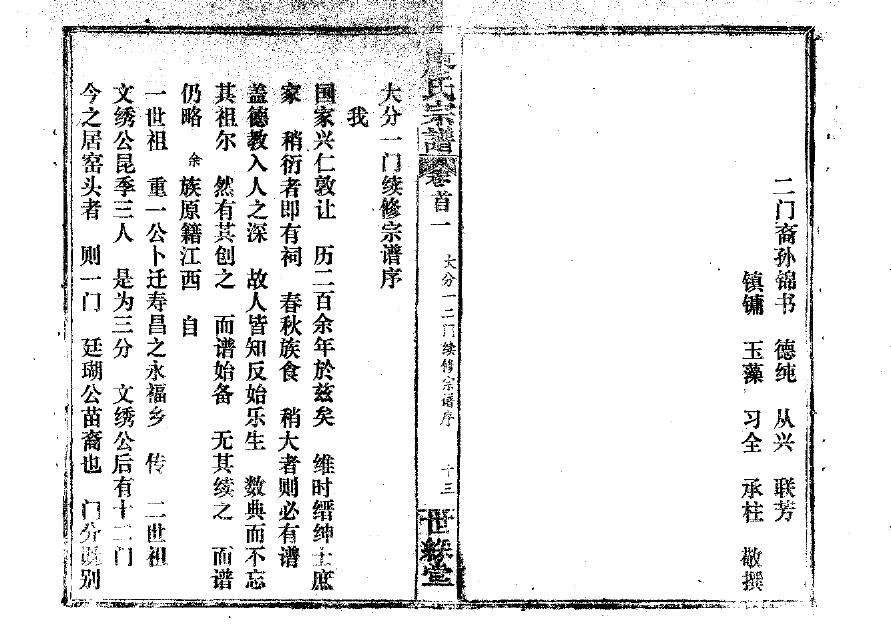 二门裔孙锦书 德纯 从兴 联芳
镇镛 玉藻 习全 承柱 敬撰
氏宗譜
卷首一
大分一二门续修宗谱序
十三
世 堂
大分一门续修宗谱序
我
国家兴仁敦让 历二百余年於兹矣 维时缙绅士庶
家 稍衍者即有祠 春秋族食 稍大者则必有谱
盖德教入人之深 故人皆知反始乐生 数典而不忘
其祖尔 然有其创之 而谱始备 无其续之 而谱
仍略 余族原籍江西 自
一世祖 重一公卜迁寿昌之永福乡 传 二世祖
文绣公昆季三人 是为三分 文绣公后有十二门
今之居窑头者 则一门 廷瑚公苗裔也 门分 别